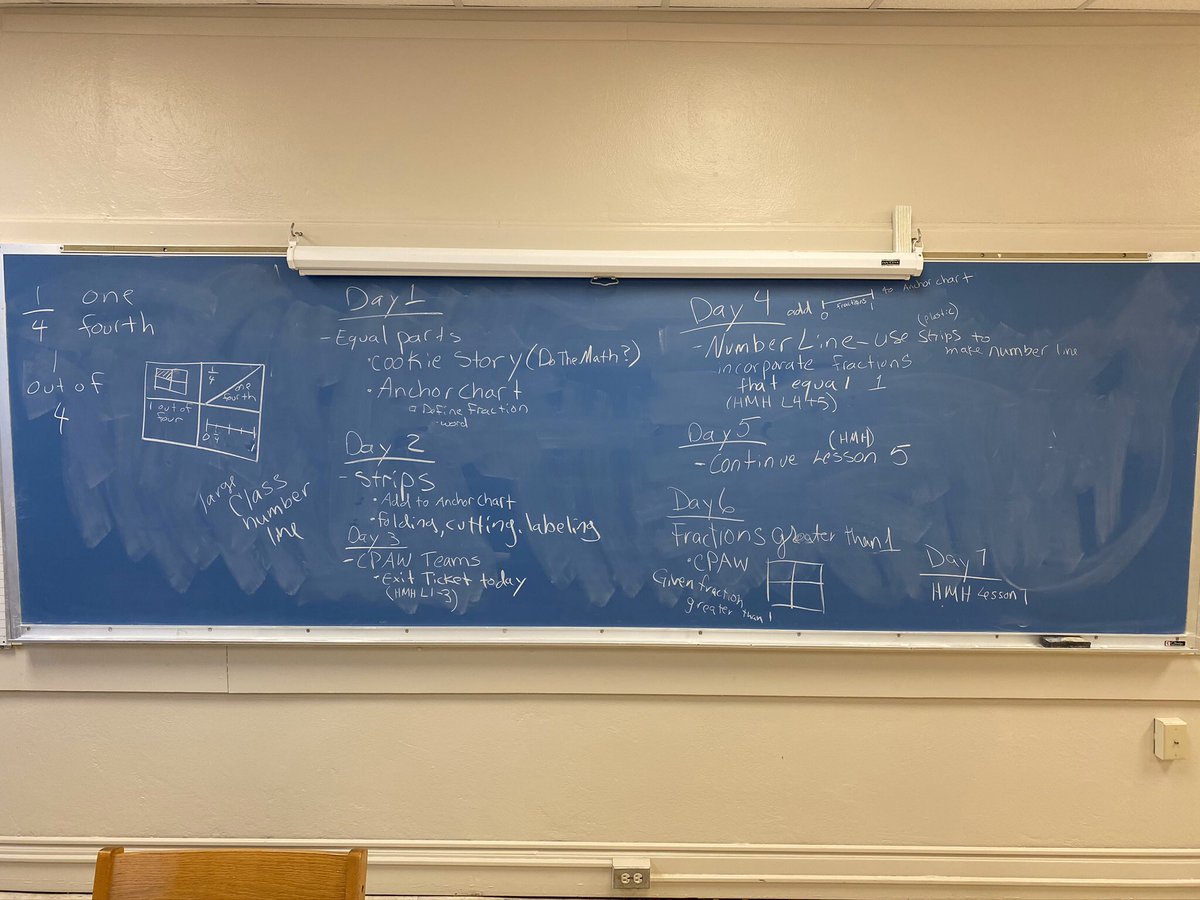 1/4 one
fourth
1
out of
4
1/4 one
fourth
1 out of
four
0 1/4 1
large
class
number
line
Day 1
- Equal parts
• Cookie Story (Do The Math?)
• Anchor chart
Define Fraction
- word
Day 2
- Strips
• Add to Anchor Chart
• Folding, cutting, labeling
Day 3
- CPAW Teams
• Exit Ticket today
(HMH L1-3)
Day 4 add fractions 0 1 to Anchor chart
(plastic)
- Number Line - use strips to
make number line
incorporate fractions
that equal 1
(HMH L4+5)
Day 5
(HMH)
- Continue Lesson 5
Day 6
Fractions greater than 1
• CPAW
Given fraction
greater than 1
Day 7
HMH Lesson 7